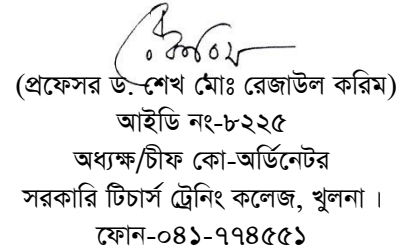 রেজাউল করিম
(প্রফেসর ড. শেখ মোঃ রেজাউল করিম)
আইডি নং-৮২২৫
অধ্যক্ষ/চীফ কো-অর্ডিনেটর
সরকারি টিচার্স ট্রেনিং কলেজ, খুলনা।
ফোন-০৪১-৭৭৪৫৫১